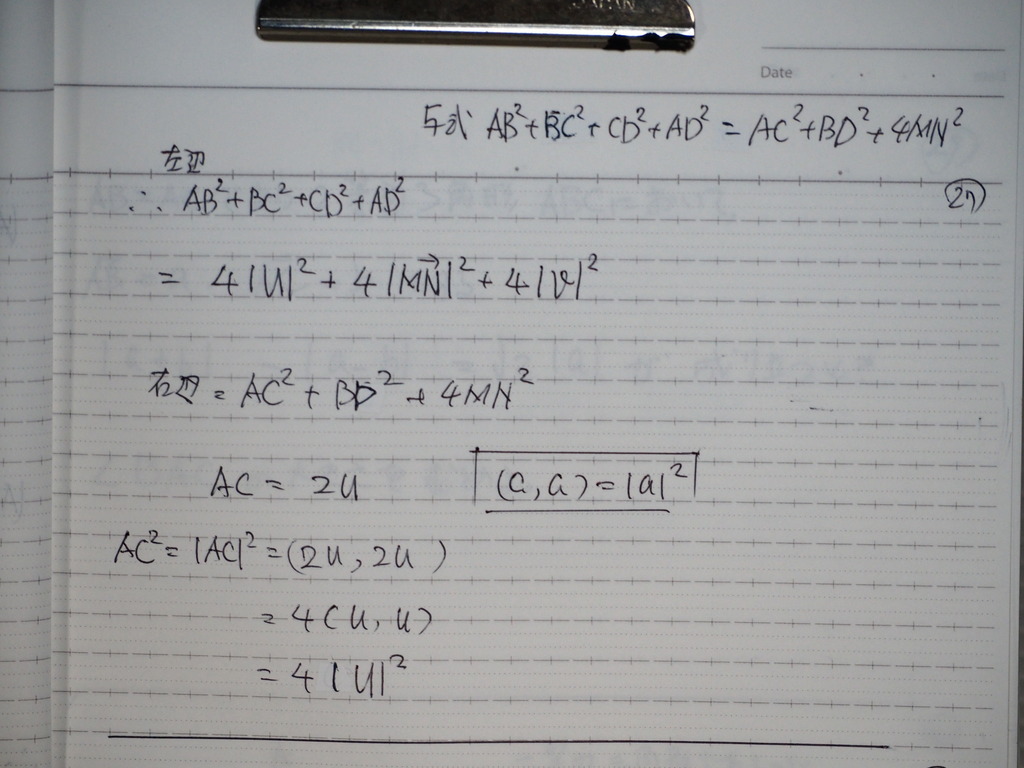 Date
与式 AB²+BC²+CD²+AD² = AC²+BD²+4MN²
左辺
∴ AB²+BC²+CD²+AD²
27
= 4|U|² + 4|MN→|² + 4|V|²
右辺 = AC² + BD² + 4MN²
AC = 2U
(a, a) = |a|²
AC² = |AC|² = (2U, 2U)
= 4(U, U)
= 4|U|²